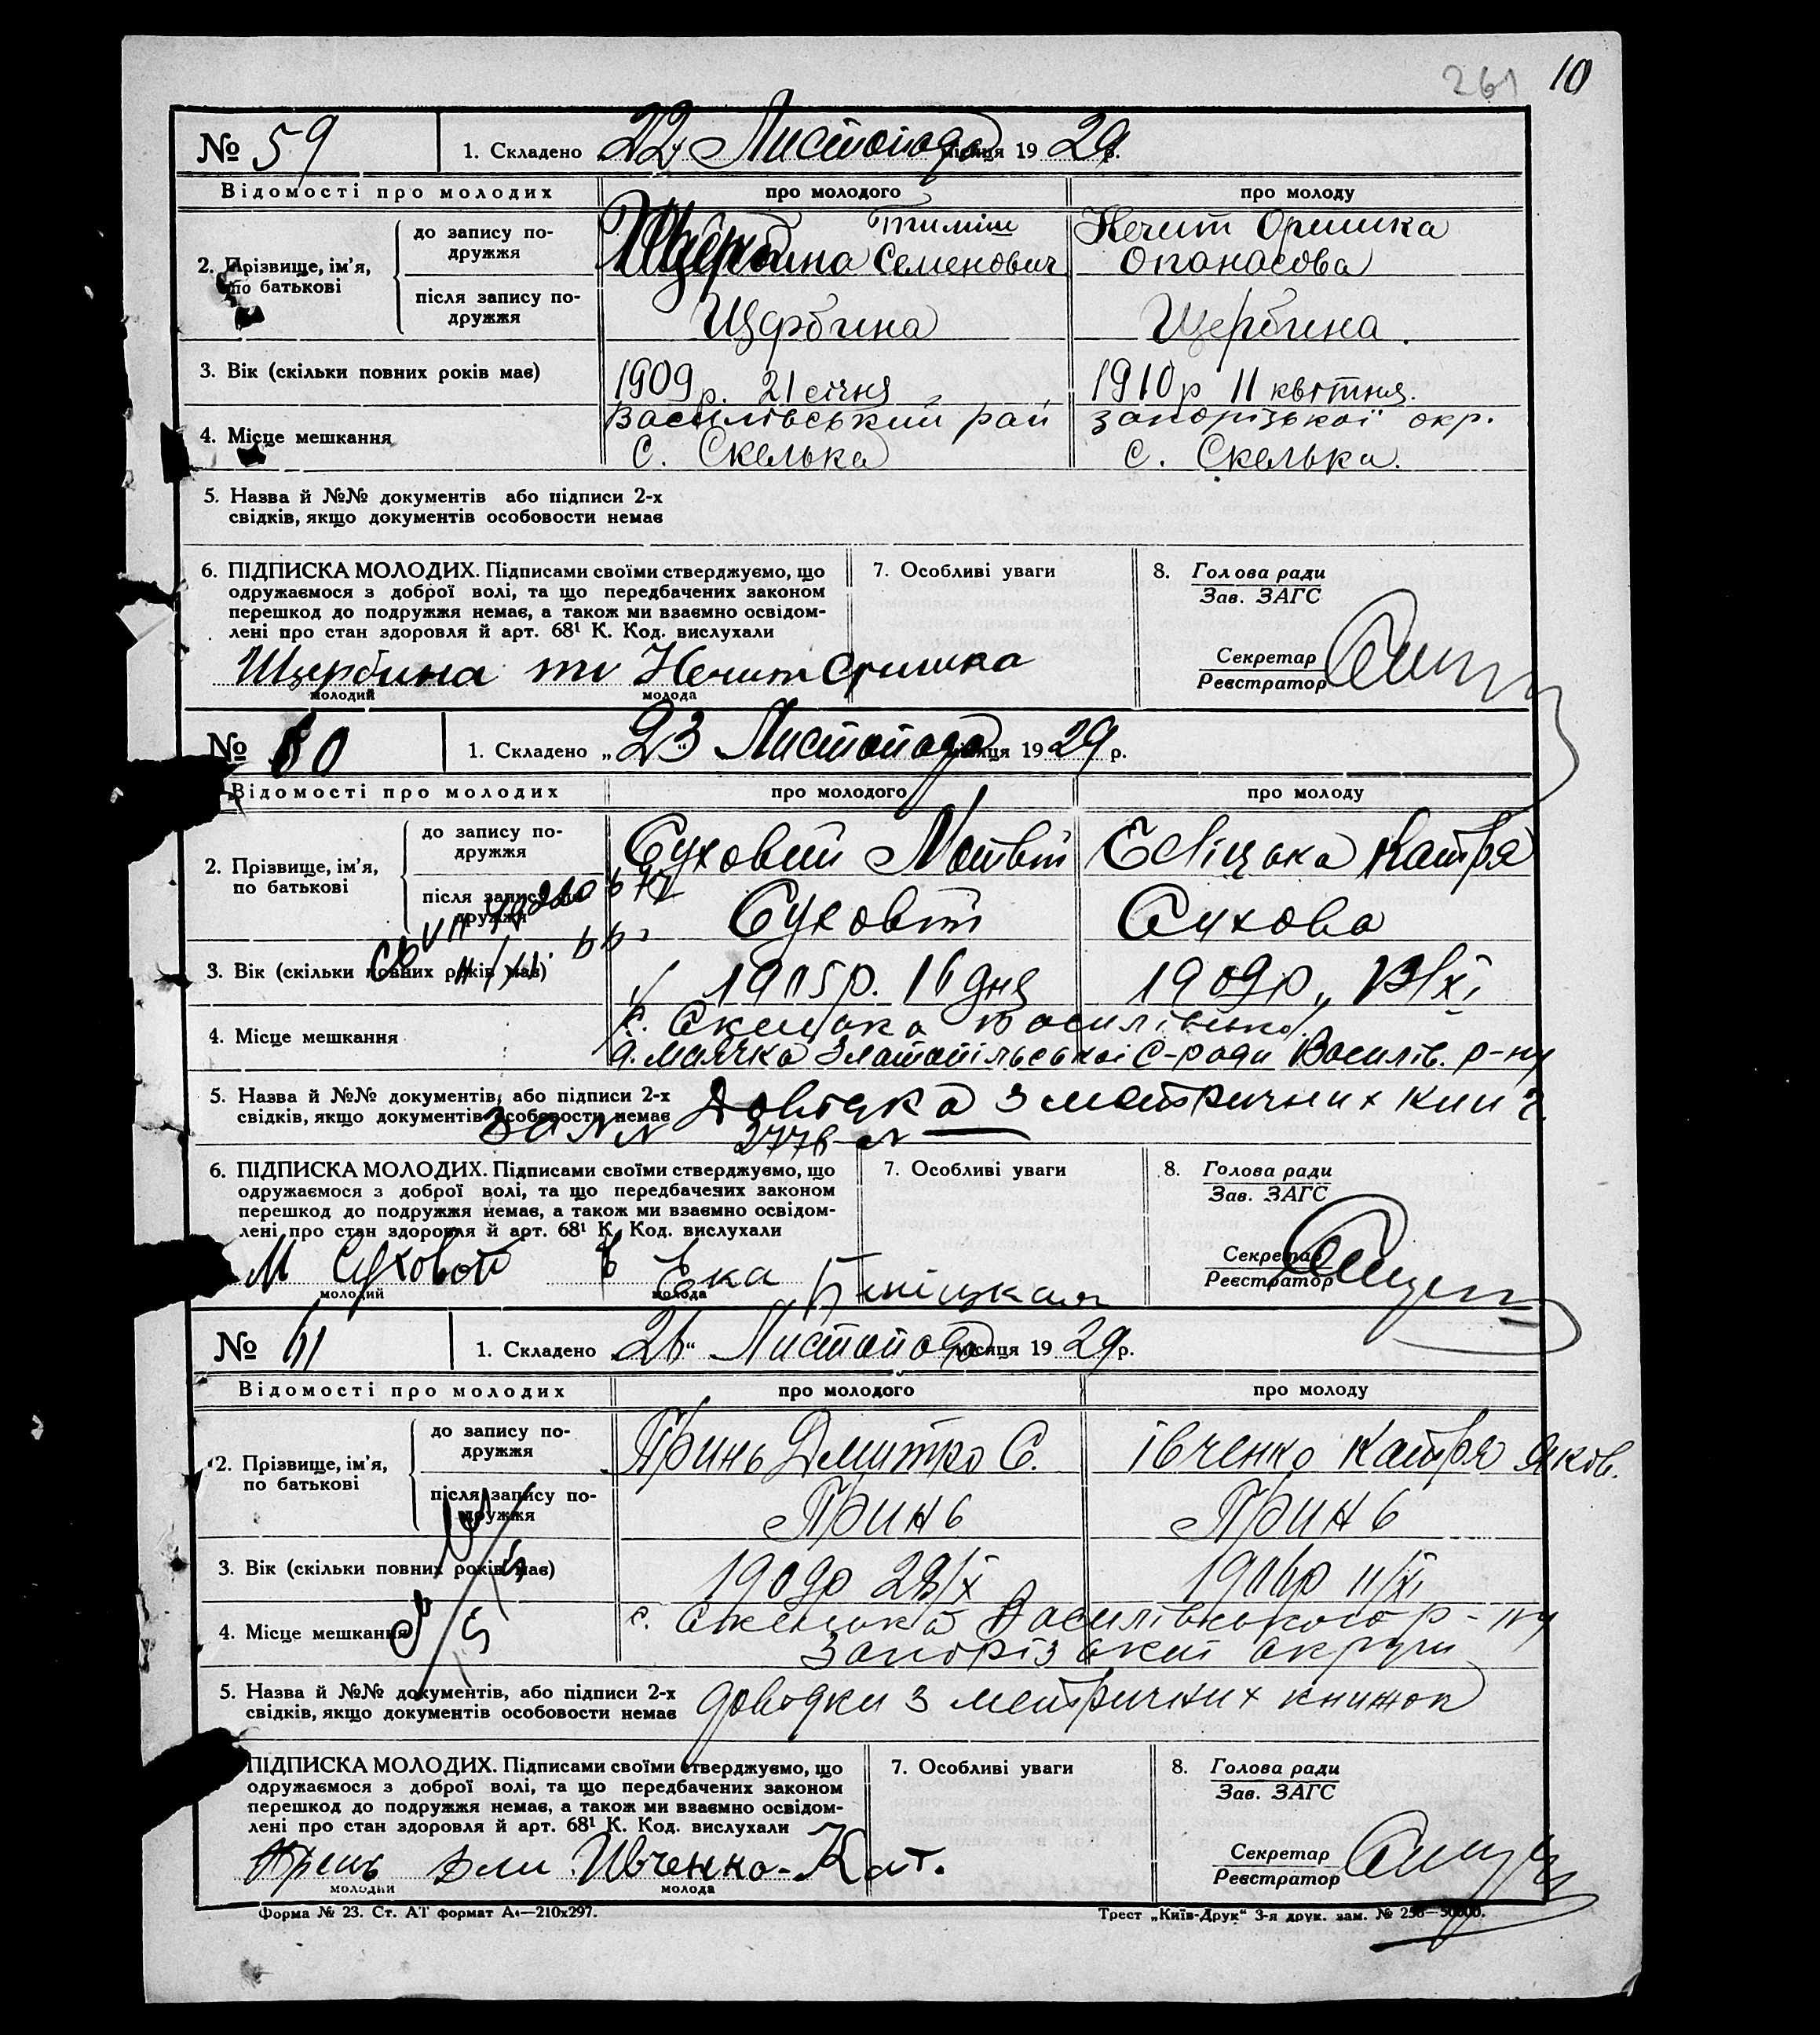 261 10
№ 59 1. Складено 22 Листопада місяця 1929 р.
Відомості про молодих про молодого про молоду
2. Прізвище, ім'я, по батькові
до запису подружжя
Щербина Тиміш Семенович
Нечит Оришка Опанасова
після запису подружжя
Щербина Щербина.
3. Вік (скільки повних років має) 1909 р. 21 січня 1910 р 11 квітня.
4. Місце мешкання
Василівський рай запорізької окр.
с. Скелька с. Скелька.
5. Назва й №№ документів або підписи 2-х
свідків, якщо документів особовости немає
6. ПІДПИСКА МОЛОДИХ. Підписами своїми стверджуємо, що
одружаємося з доброї волі, та що передбачених законом
перешкод до подружжя немає, а також ми взаємно освідом-
лені про стан здоровля й арт. 68¹ К. Код. вислухали
7. Особливі уваги
8. Голова ради
Зав. ЗАГС
Секретар
Реєстратор
Щербина ти Нечит Оришка
молодий молода
№ 60 1. Складено „23 Листопада місяця 1929 р.
Відомості про молодих про молодого про молоду
2. Прізвище, ім'я, по батькові
до запису подружжя
Суховий Матвій Катря
після запису подружжя
Суховій Сухова
3. Вік (скільки повних років має) 1905 р. 16 дня 1909 р
4. Місце мешкання
с. Скелька Василівсько
Маячка Златопільської С-ради Василів. р-ну
5. Назва й №№ документів, або підписи 2-х
свідків, якщо документів особовости немає
Довідка з метричних книг
за NN 2776
6. ПІДПИСКА МОЛОДИХ. Підписами своїми стверджуємо, що
одружаємося з доброї волі, та що передбачених законом
перешкод до подружжя немає, а також ми взаємно освідом-
лені про стан здоровля й арт. 68¹ К. Код. вислухали
7. Особливі уваги
8. Голова ради
Зав. ЗАГС
Секретар
Реєстратор
М Суховой Ека
молодий молода
№ 61 1. Складено „26“ Листопада місяця 1929 р.
Відомості про молодих про молодого про молоду
2. Прізвище, ім'я, по батькові
до запису подружжя
Принь Дмитро С. івченко Катря Яков.
після запису подружжя
Принь Принь
3. Вік (скільки повних років має) 1909р 28/X 1906р 11/XI
4. Місце мешкання
с. Скелька Василівського р-ну
Запорізької округи
5. Назва й №№ документів, або підписи 2-х
свідків, якщо документів особовости немає
довідки з метричних книжок
ПІДПИСКА МОЛОДИХ. Підписами своїми стверджуємо, що
одружаємося з доброї волі, та що передбачених законом
перешкод до подружжя немає, а також ми взаємно освідом-
лені про стан здоровля й арт. 68¹ К. Код. вислухали
7. Особливі уваги
8. Голова ради
Зав. ЗАГС
Секретар
Реєстратор
Ивченко-Кат.
молодий молода
Форма № 23. Ст. АТ формат А4—210x297.
Трест „Київ-Друк“ 3-я друк. зам. №